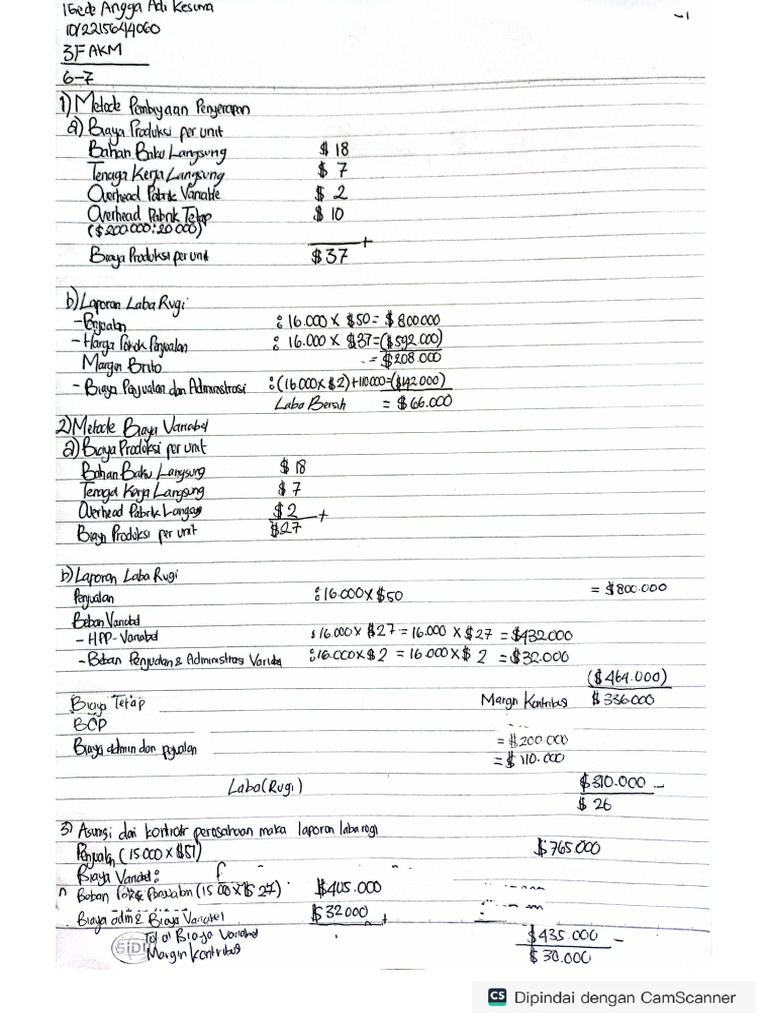 I Gede Angga Adi Kesuma
10/2215644060
3F AKM
6-7
1) Metode Pembiayaan Penyerapan
a) Biaya Produksi per unit
Bahan Baku Langsung $ 18
Tenaga Kerja Langsung $ 7
Overhead Pabrik Variable $ 2
Overhead Pabrik Tetap $ 10
($200.000:20.000)
+
Biaya Produksi per unit $37
b) Laporan Laba Rugi
- Penjualan : 16.000 x $50 = $ 800.000
- Harga Pokok Penjualan : 16.000 x $37 = ($592.000)
Margin Bruto = $208.000
- Biaya Penjualan dan Administrasi : (16.000x$2)+110.000=($142.000)
Laba Bersih = $66.000
2) Metode Biaya Variabel
a) Biaya Produksi per unit
Bahan Baku Langsung $ 18
Tenaga Kerja Langsung $ 7
Overhead Pabrik $2 +
Biaya Produksi per unit $27
b) Laporan Laba Rugi
Penjualan : 16.000 x $50 = $800.000
Beban Variabel
- HPP-Variabel : 16.000 x $27 = 16.000 x $27 = $432.000
- Beban Penjualan & Administrasi Variabel : 16.000x$2 = 16.000x$ 2 = $32.000
($464.000)
Biaya Tetap Margin Kontribusi $ 336.000
BOP = $200.000
Biaya admin dan penjualan = $ 110.000
Laba (Rugi) $310.000 -
$ 26
3) Asumsi dari kontroler perusahaan maka laporan laba rugi
Penjualan (15.000 x $51) $765.000
Biaya Variabel :
Beban Penjualan (15 00 x $ 27) $405.000
Biaya adm & Biaya Variabel $32000 +
Total Biaya Variabel $435.000 -
Margin Kontribusi $ 30.000
SiDU
-1
CS Dipindai dengan CamScanner